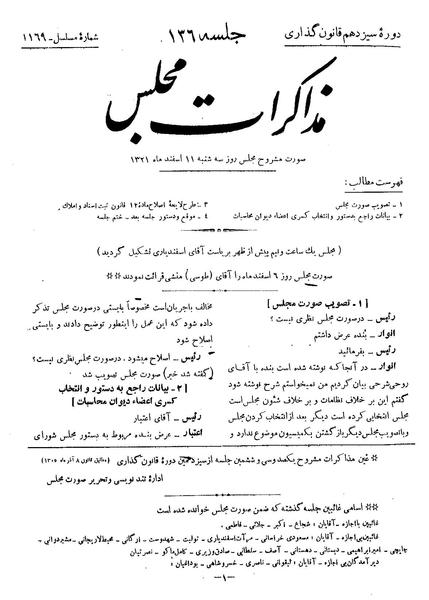 دورهٔ سیزدهم قانون گذاری
جلسه ۱۳۶
شمارهٔ مسلسل - ۱۱۶۹
مذاکرات مجلس
صورت مشروح مجلس روز سه شنبه ۱۱ اسفند ماه ۱۳۲۱
فهرست مطالب:
۱ - تصویب صورت مجلس
۲ - بیانات راجع بدستور و انتخاب کسری اعضاء دیوان محاسبات
۳ - طرح لایحهٔ اصلاح مادهٔ ۱۲ قانون ثبت اسناد و املاک
۴ - موقع و دستور جلسه بعد - ختم جلسه
(مجلس یك ساعت و نیم پیش از ظهر بریاست آقای اسفندیاری تشکیل گردید)
صورت مجلس روز ۶ اسفند ماه را آقای (طوسی) منشی قرائت نمودند **
[۱ - تصویب صورت مجلس]
رئیس - در صورت مجلس نظری نیست؟
انوار - بنده عرض داشتم
رئیس - بفرمائید
انوار - در آنجا که نوشته شده است بنده با آقای
روحی شرحی بیان کردیم من نمیخواستم شرح نوشته شود
گفتم این بر خلاف نظامات و بر خلاف شئون مجلس است
مجلس انتخابی کرده است دیگر بعد از انتخاب کردن مجلس
و باتصویب مجلس دیگر باز گشتن بکمیسیون موضوع ندارد و
مخالف باجریان است مخصوصاً بایستی در صورت مجلس تذکر
داده شود که این عمل را اینطور توضیح دادند و بایستی
اصلاح شود
رئیس - اصلاح میشود. در صورت مجلس نظری نیست؟
(گفته شد خیر) صورت مجلس تصویب شد
[۲ - بیانات راجع به دستور و انتخاب
کسری اعضاء دیوان محاسبات]
رئیس - آقای اعتبار
اعتبار - عرض بنده مربوط به دستور مجلس شورای
* عین مذاکرات مشروح یکصد وسی و ششمین جلسه از سیزدهمین دورهٔ قانون گذاری (مطابق قانون ۸ آذر ماه ۱۳۰۵)
ادارهٔ تند نویسی و تحریر صورت مجلس
** اسامی غائبین جلسه گذشته که ضمن صورت مجلس خوانده شده است
غائبین با اجازه - آقایان: شجاع - اکبر - جلائی - فاطمی.
غائبین بی اجازه - آقایان: مسعودی خراسانی - مرآت اسفندیاری - تولیت - شهدوست - ارگانی - محیط لاریجانی - مشیر دوانی -
چایچی - امیر ابراهیمی - دبستانی - دهستانی - آصف - سلطانی - صادق وزیری - کامل ماکو - نصرتیان
دیر آمدگان بی اجازه - آقایان: لیقوانی - ناصری - خسروشاهی - بوداغیان
-۱-